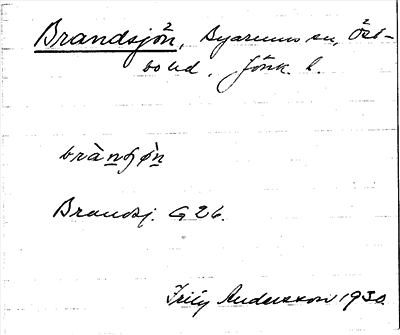 Brandsjön, Byarums sn, Öst-
bo hd, Jönk. l.
brànʃø̀n
Brandsj. G 26.
Fritz Andersson 1930.